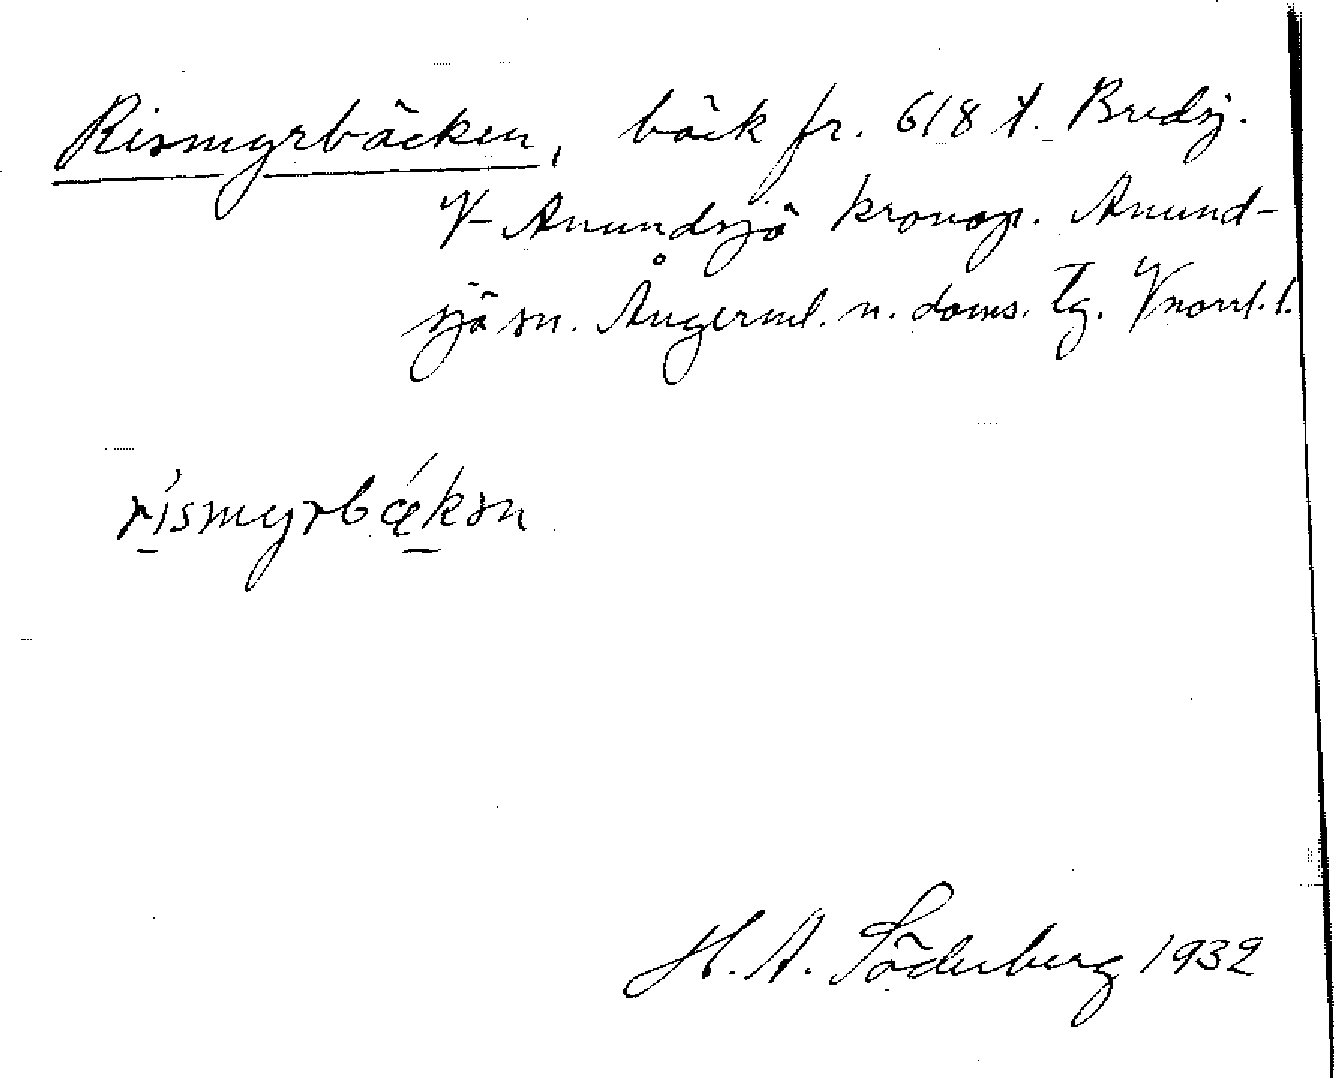 Rismyrbäcken, bäck fr. 618 t. Bredsj.
V Anundsjö kronop. Anund-
sjö sn. Ångerml. n. doms. Tg. Vnorrl. l.
rismyrbækən
H. A. Söderberg 1932